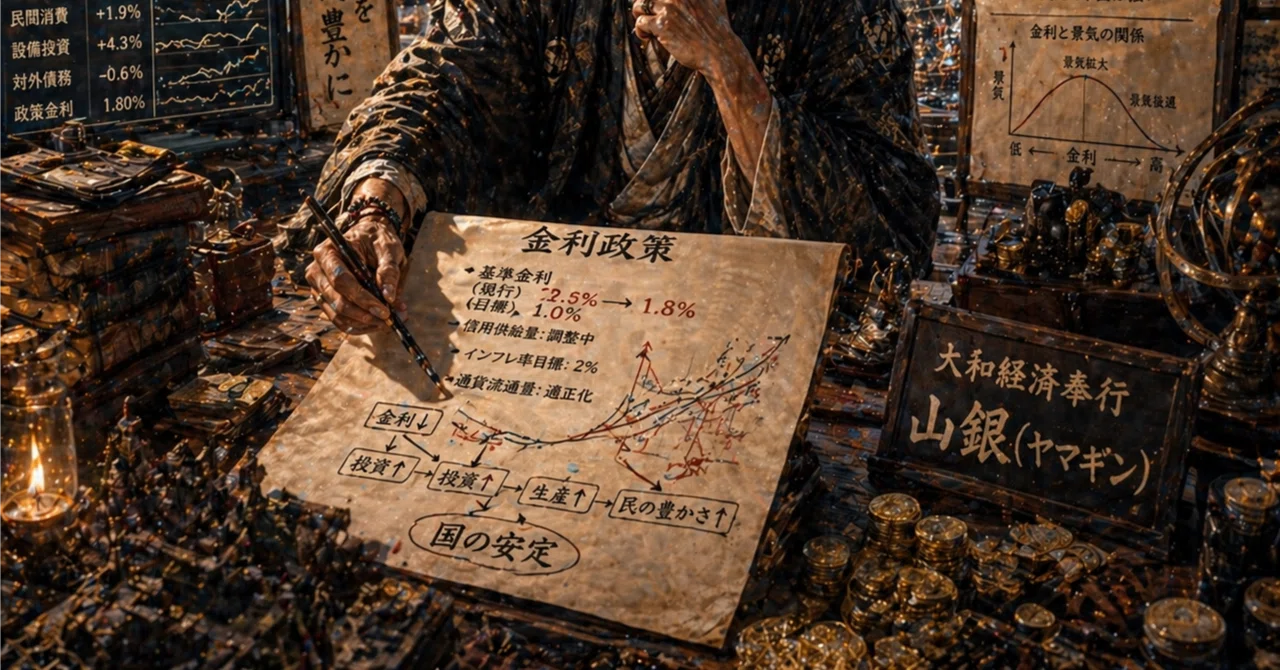 民間消費 +1.9%
設備投資 +4.3%
対外債務 -0.6%
政策金利 1.80%
を
豊かに
金利と景気の関係
景気拡大
景気後退
景気
低 ← 金利 → 高
金利政策
基準金利
(現行) 2.5% → 1.8%
(目標) 1.0%
信用供給量:調整中
インフレ率目標:2%
通貨流通量:適正化
金利↓
投資↑
投資↑
生産↑
民の豊かさ↑
国の安定
大和経済奉行
山銀(ヤマギン)